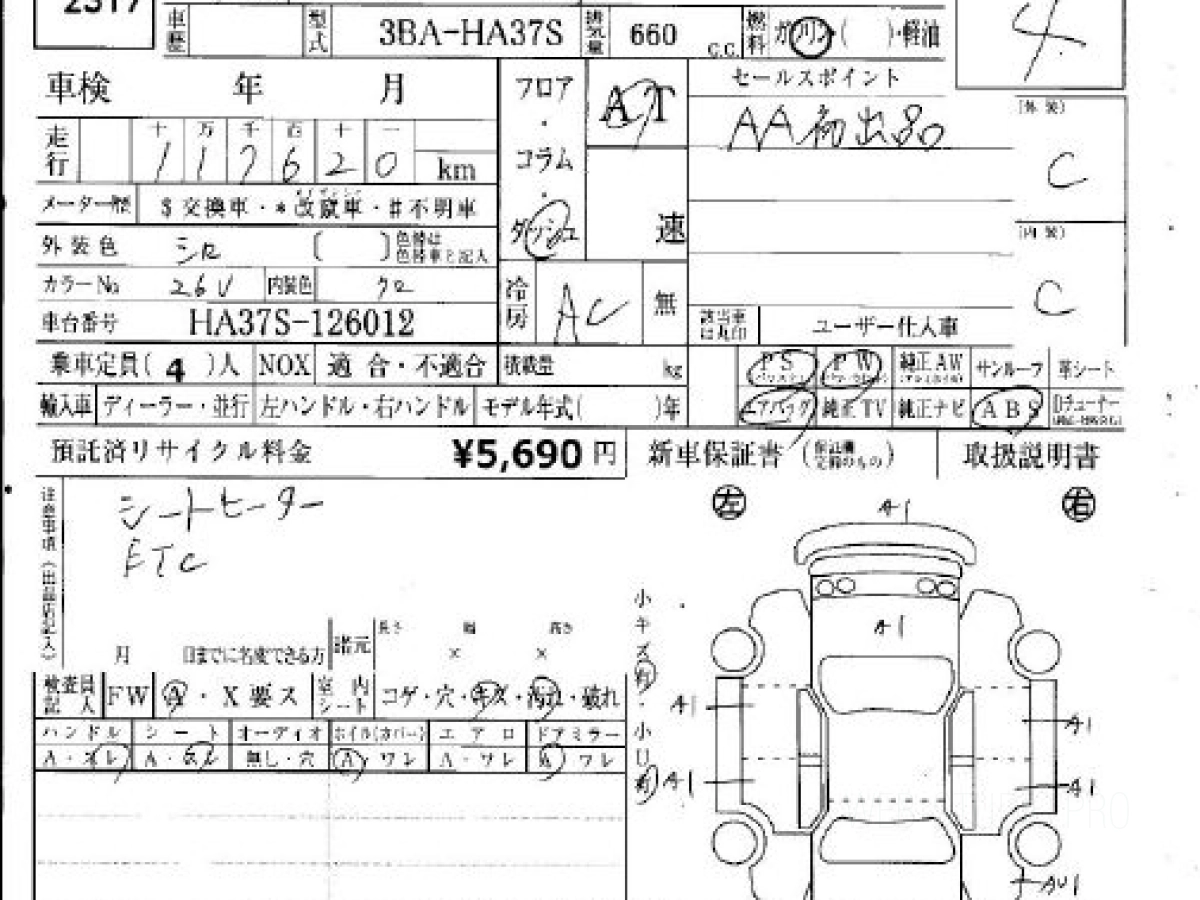 2317
車歴 型式 3BA-HA37S 排気量 660 C.C. 燃料 ガソリン( )・軽油 4
車検 年 月 フロア・コラム・ダッシュ AT 速 セールスポイント
AA初出品
走行 十万千百十一 117620 km
[外装] C
メーター歴 $交換車・*改竄車・#不明車
[内装] C
外装色 シロ ( ) 色替は色替車と記入
カラーNo 26U 内装色 クロ 冷房 AC 無
車台番号 HA37S-126012 該当車は丸印 ユーザー仕入車
乗車定員( 4 )人 NOX 適合・不適合 積載量 kg PS PW 純正AW サンルーフ 革シート
輸入車 ディーラー・並行 左ハンドル・右ハンドル モデル年式( )年 エアバッグ 純正TV 純正ナビ ABS
預託済リサイクル料金 ¥5,690 円 新車保証書 取扱説明書
注意事項(出品店記入)
シートヒーター
ETC
左 右
A1
A1
月 日までに名変できる方 諸元 長さ × 幅 × 高さ
小キズ有・小凹有
検査員記入 FW A・X要ス 室内シート コゲ・穴・キズ・汚れ・破れ
ハンドル シート オーディオ ホイル(カバー) エアロ ドアミラー
A・スレ A・スレ 無し・穴 A・ワレ A・ワレ A ワレ
A1 A1
A1 A1
AU1